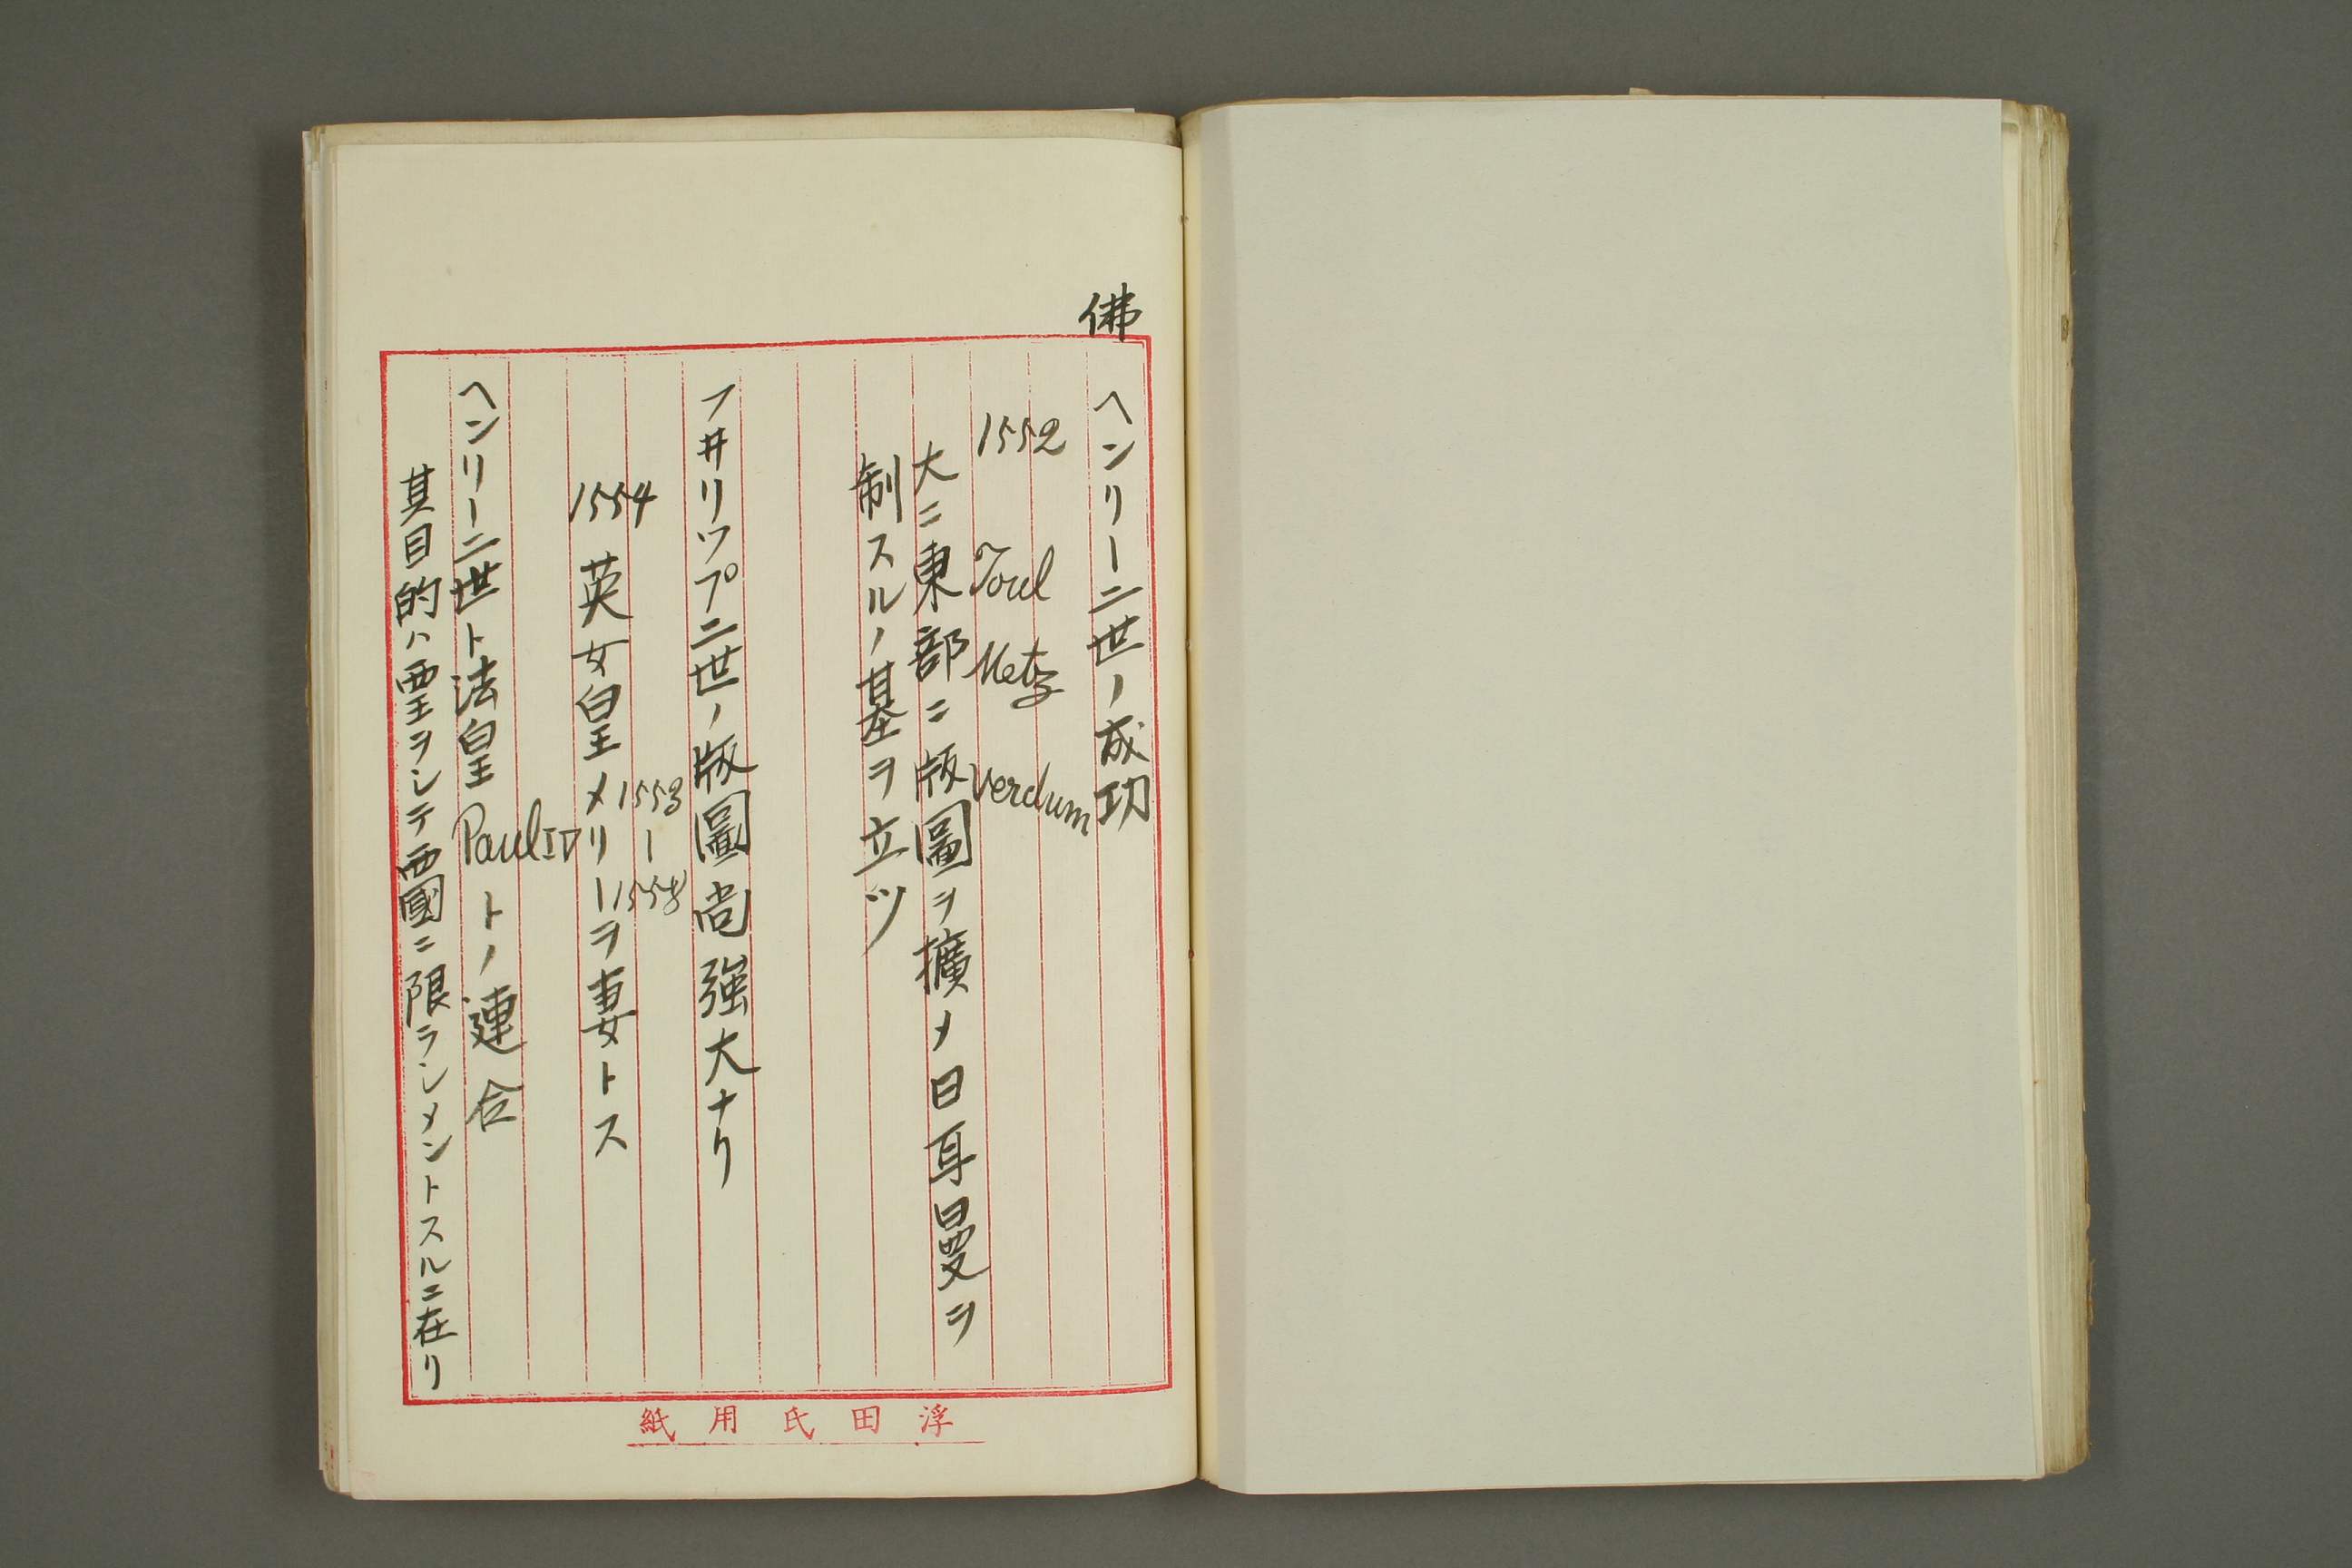 佛
ヘンリー二世ノ成功
1552 Toul Metz Verdum
大ニ東部ニ版圖ヲ擴メ日耳曼ヲ
制スルノ基ヲ立ツ
フ井リップ二世ノ版圖尚強大ナリ
1553ー1558
1554 英女皇メリーヲ妻トス
ヘンリー二世ト法皇 PaulIV トノ連合
其目的ハ西王ヲシテ西國ニ限ランメントスルニ在リ
浮田氏用紙